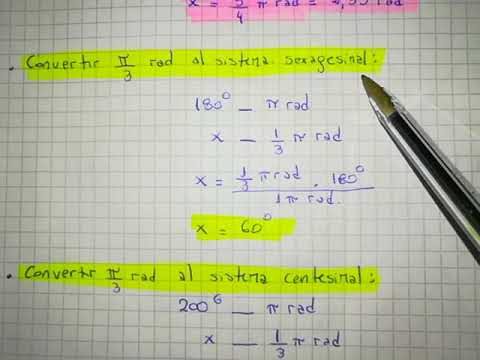 x = 3/4 π rad = 2,35 rad
. Convertir π/3 rad al sistema sexagesimal:
180° — π rad
x — 1/3 π rad
x = 1/3 π rad . 180° / 1 π rad.
x = 60°
. Convertir π/3 rad al sistema centesimal:
200ᴳ — π rad
x — 1/3 π rad